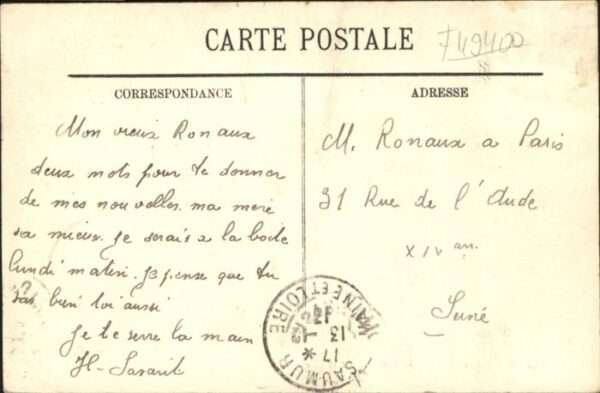 CARTE POSTALE
F49400
CORRESPONDANCE
Mon vieux Ronaux
deux mots pour te donner
de mes nouvelles. ma mere
va mieux. je serais a la boite
lundi matin. je pense que tu
vas bien toi aussi
je te serre la main
H-
ADRESSE
M. Ronaux a Paris
31 Rue de l'Aude
XIV arr.
SAUMUR
MAINE ET LOIRE
17 *
13